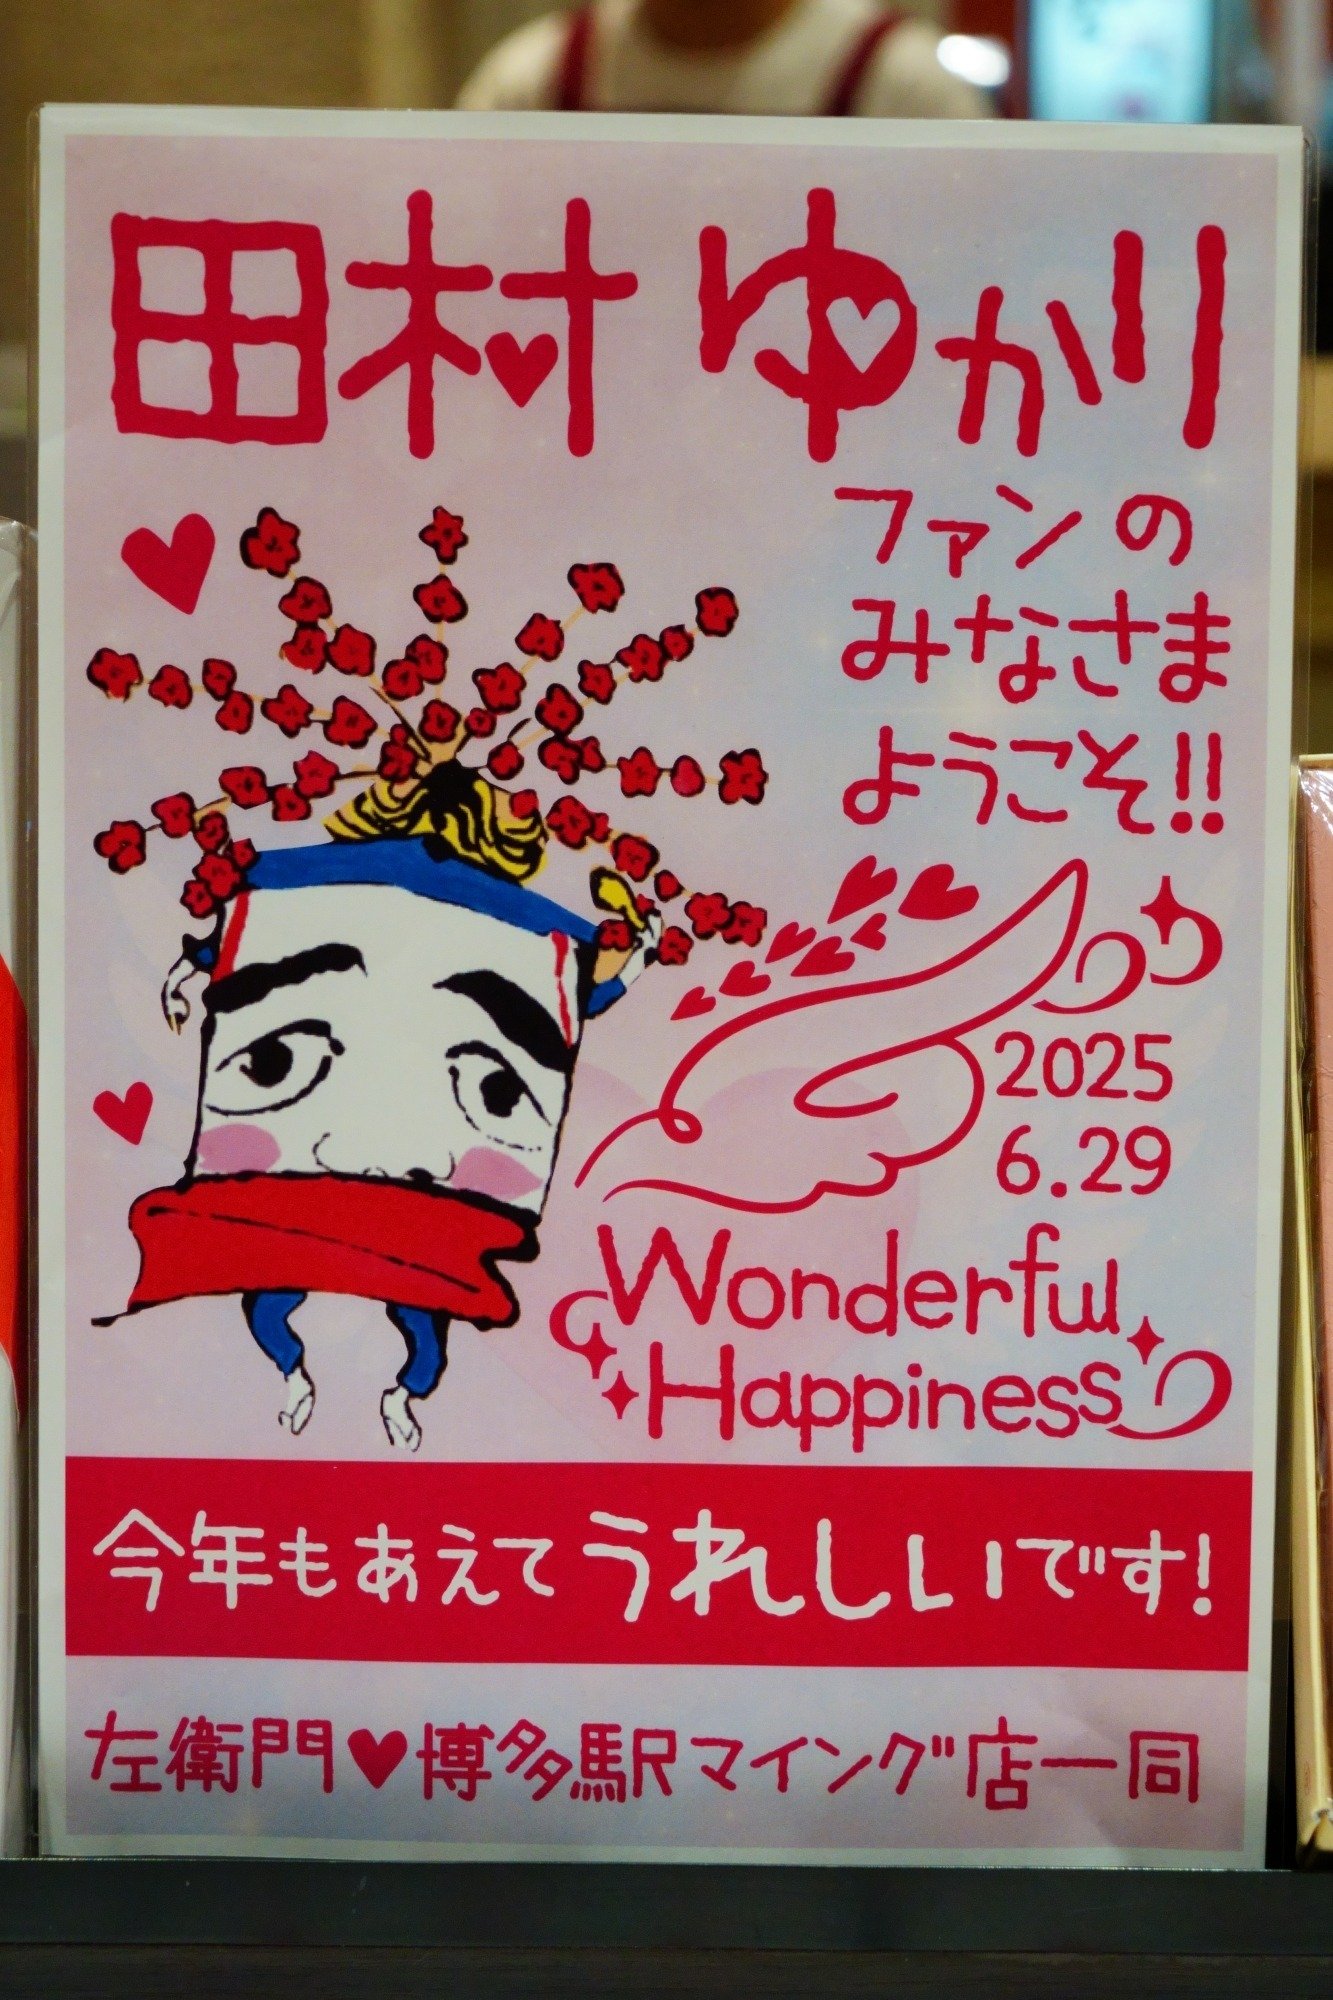 田村ゆかり
ファンの
みなさま
ようこそ!!
2025
6.29
Wonderful
Happiness
今年もあえてうれしいです!
左衛門♥博多駅マイング店一同